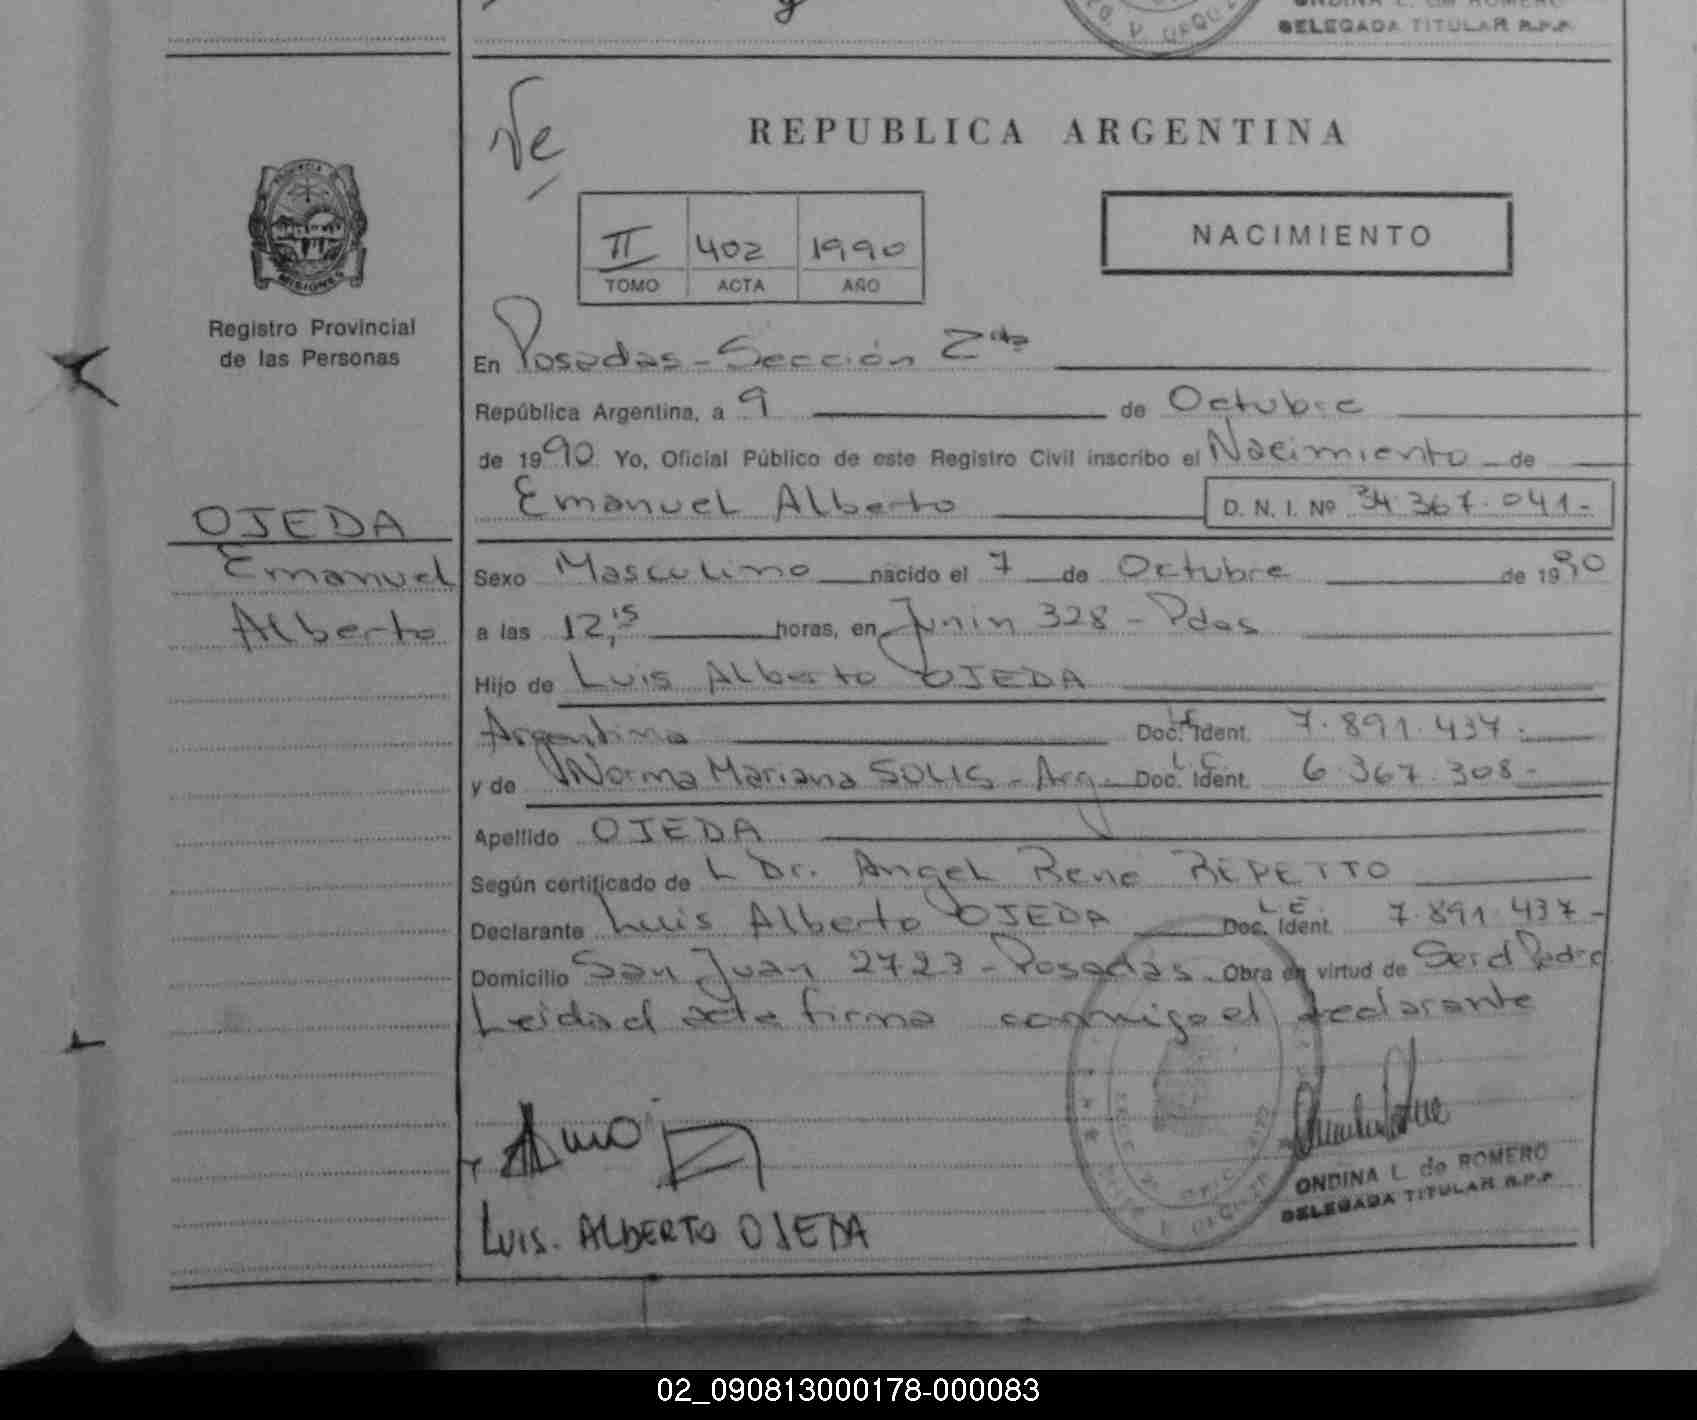 ONDINA L. de ROMERO
DELEGADA TITULAR R.P.P.
REPUBLICA ARGENTINA
NACIMIENTO
II 402 1990
TOMO ACTA AÑO
PROVINCIA
MISIONES
Registro Provincial
de las Personas
En Posadas - Sección 2da
República Argentina, a 9 de Octubre
de 1990 Yo, Oficial Público de este Registro Civil inscribo el Nacimiento de
Emanuel Alberto D. N. I. Nº 34.367.041-
OJEDA
Emanuel
Alberto
Sexo Masculino nacido el 7 de Octubre de 1990
a las 12,15 horas, en Junin 328 - Pdas
Hijo de Luis Alberto OJEDA
Argentina Doc. Ident. L.E. 7.891.437.-
y de Norma Mariana SOLIS - Arg. Doc. Ident. L.C. 6.367.308-
Apellido OJEDA
Según certificado de L Dr. Angel Rene REPETTO
Declarante Luis Alberto OJEDA Doc. Ident. L.E. 7.891.437-
Domicilio San Juan 2723 - Posadas. Obra en virtud de Ser el Padre
Leida el acta firma conmigo el declarante
LUIS. ALBERTO OJEDA
ONDINA L. de ROMERO
DELEGADA TITULAR R.P.P.
02_090813000178-000083